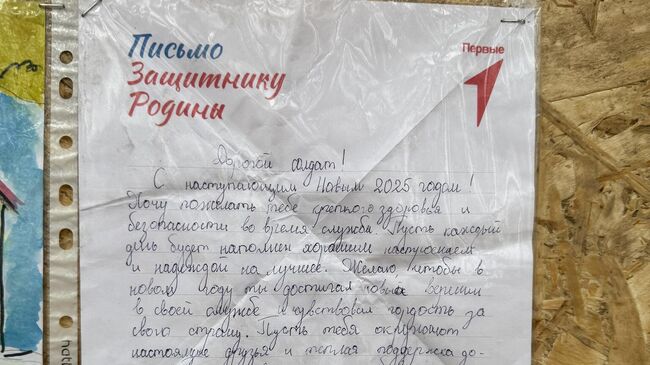 Письмо
Защитнику
Родины
Первые
Дорогой солдат!
С наступающим Новым 2025 годом!
Хочу пожелать тебе крепкого здоровья и
безопасности во время службы. Пусть каждый
день будет наполнен хорошим настроением
и надеждой на лучшее. Желаю чтобы в
новом году ты достигал новых вершин
в своей службе и чувствовал гордость за
свою страну. Пусть тебя окружают
настоящие друзья и теплая поддержка до-